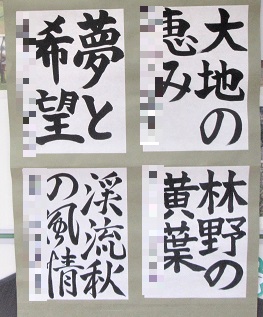 大地の
恵み
夢と
希望
林野の
黄葉
渓流秋
の風情